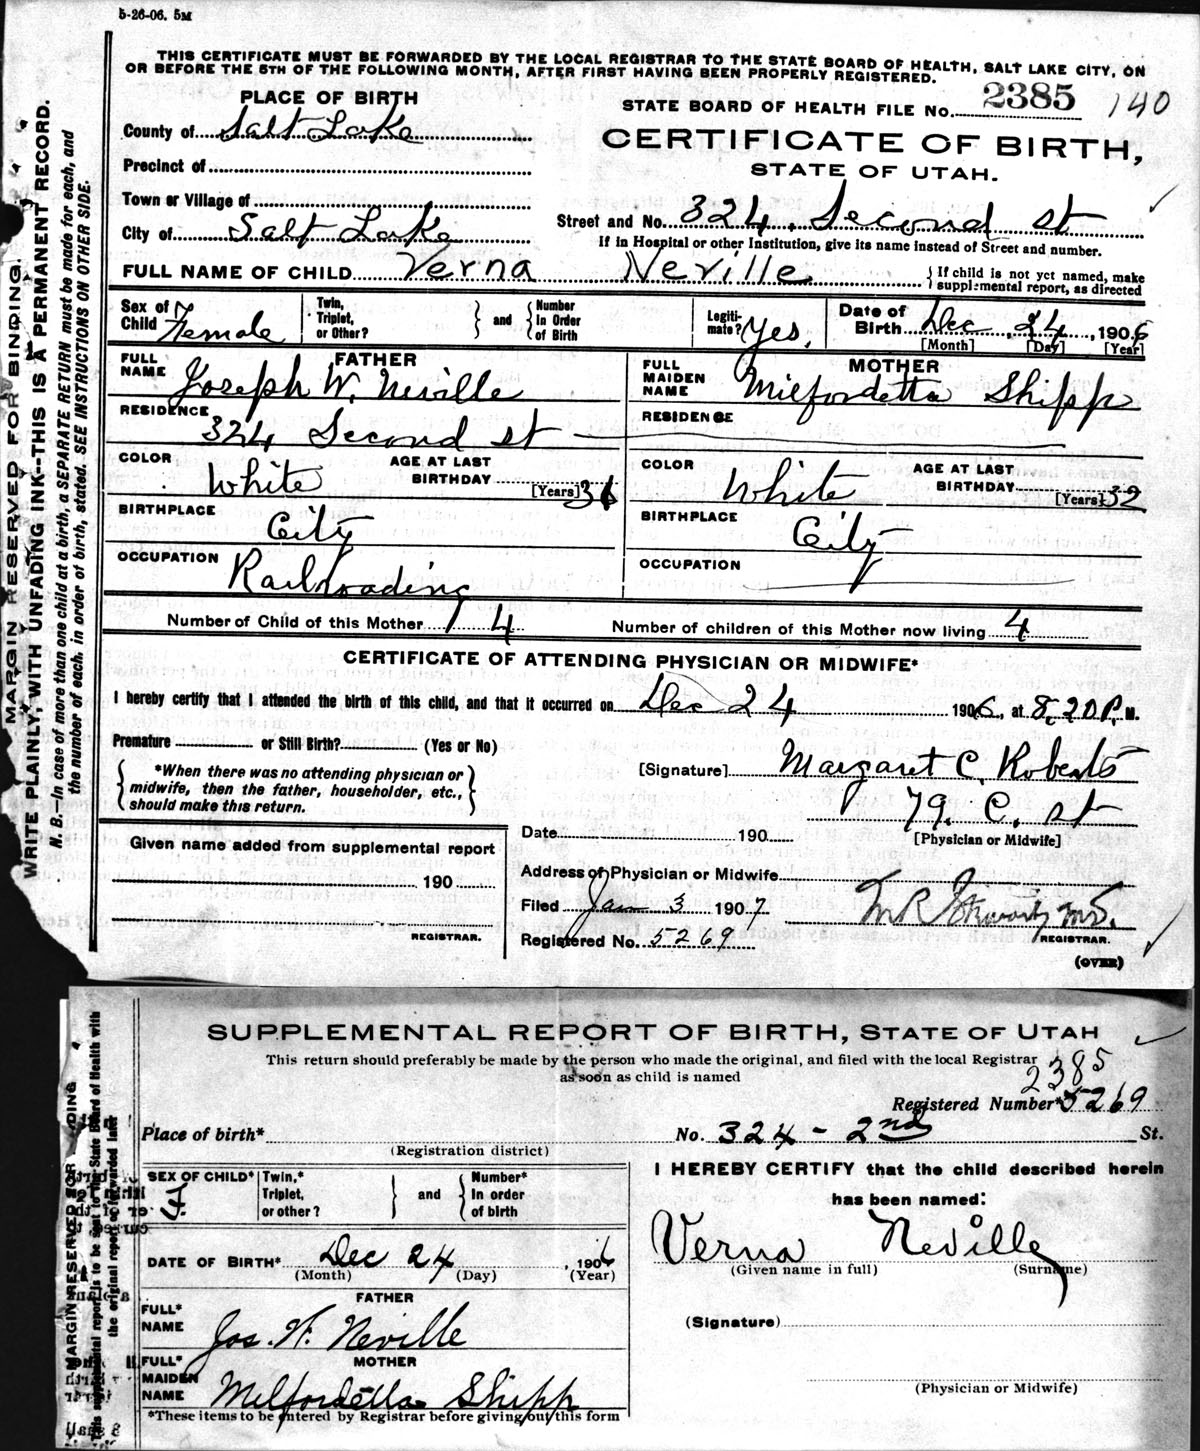 5-26-06. 5M
THIS CERTIFICATE MUST BE FORWARDED BY THE LOCAL REGISTRAR TO THE STATE BOARD OF HEALTH, SALT LAKE CITY, ON
OR BEFORE THE 5TH OF THE FOLLOWING MONTH, AFTER FIRST HAVING BEEN PROPERLY REGISTERED.
MARGIN RESERVED FOR BINDING.
WRITE PLAINLY, WITH UNFADING INK--THIS IS A PERMANENT RECORD.
N. B.—In case of more than one child at a birth, a SEPARATE RETURN must be made for each, and
the number of each, in order of birth, stated. SEE INSTRUCTIONS ON OTHER SIDE.
PLACE OF BIRTH
County of Salt Lake
Precinct of
Town or Village of
City of Salt Lake
STATE BOARD OF HEALTH FILE No. 2385 140
CERTIFICATE OF BIRTH,
STATE OF UTAH.
Street and No. 324, Second st
If in Hospital or other Institution, give its name instead of Street and number.
FULL NAME OF CHILD Verna Neville
{ If child is not yet named, make
supplemental report, as directed
Sex of Child Female
Twin, Triplet, or Other? } and { Number In Order of Birth
Legiti-mate? Yes.
Date of Birth Dec 24, 1906
[Month] [Day] [Year]
FATHER
FULL NAME Joseph W. Neville
RESIDENCE 324 Second st
COLOR White AGE AT LAST BIRTHDAY [Years] 36
BIRTHPLACE City
OCCUPATION Railroading
MOTHER
FULL MAIDEN NAME Milfordetta Shipp
RESIDENCE
COLOR White AGE AT LAST BIRTHDAY [Years] 32
BIRTHPLACE City
OCCUPATION
Number of Child of this Mother 4 Number of children of this Mother now living 4
CERTIFICATE OF ATTENDING PHYSICIAN OR MIDWIFE*
I hereby certify that I attended the birth of this child, and that it occurred on Dec 24 1906, at 8.20 P. M.
Premature or Still Birth? (Yes or No)
{ *When there was no attending physician or
midwife, then the father, householder, etc.,
should make this return. }
[Signature] Margaret C. Roberts
79. C. st
[Physician or Midwife]
Date 190
Given name added from supplemental report
190
REGISTRAR.
Address of Physician or Midwife
Filed Jan 3 1907
M.D.
REGISTRAR.
Registered No. 5269
(OVER)
SUPPLEMENTAL REPORT OF BIRTH, STATE OF UTAH
This return should preferably be made by the person who made the original, and filed with the local Registrar
as soon as child is named
2385
Registered Number* 5269
Place of birth* No. 324 - 2nd St.
(Registration district)
MARGIN RESERVED FOR BINDING
This supplemental report is to be sent to the State Board of Health with
the original report or forwarded later
SEX OF CHILD* F.
Twin,* Triplet, or other? } and { Number* In order of birth
DATE OF BIRTH* Dec 24, 1906
(Month) (Day) (Year)
FATHER
FULL* NAME Jos. W. Neville
MOTHER
FULL* MAIDEN NAME Milfordetta Shipp
*These items to be entered by Registrar before giving out this form
I HEREBY CERTIFY that the child described herein
has been named:
Verna Neville
(Given name in full) (Surname)
(Signature)
(Physician or Midwife)